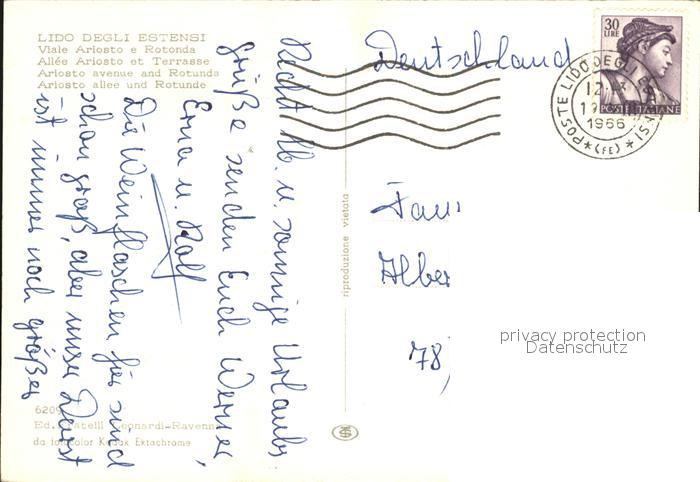 LIDO DEGLI ESTENSI
Viale Ariosto e Rotonda
Allée Ariosto et Terrasse
Ariosto avenue and Rotunda
Ariosto allee und Rotunde
Recht lb. u. sonnige Urlaubs
grüße senden Euch Werner,
Erna u. Rolf
Die Weinflaschen hier sind
schon groß, aber unser Durst
ist immer noch größer
6209
Ed. Fratelli Leonardi-Ravenna
da fotocolor Kodak Ektachrome
riproduzione vietata
Deutschland
30
LIRE
POSTE ITALIANE
POSTE LIDO DEGLI
12
1966
(FE)
Fam
Alber
78
privacy protection
Datenschutz